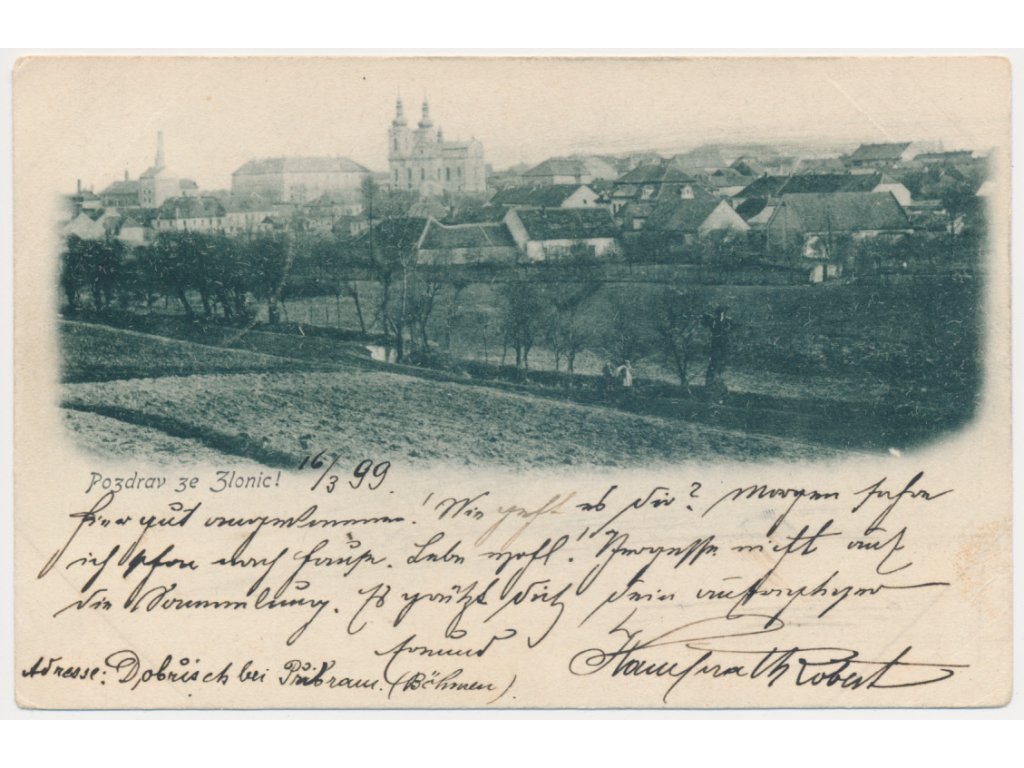 Pozdrav ze Zlonic! 16/3 99
Hier gut angekommen! Wie geht es dir? Morgen fahre
ich schon nach Hause. Lebe wohl! Vergesse nicht auf
die Sammlung. Es grüßt dich dein aufrichtiger
Freund
Robert
Adresse: Dobřisch bei Přibram. (Böhmen)